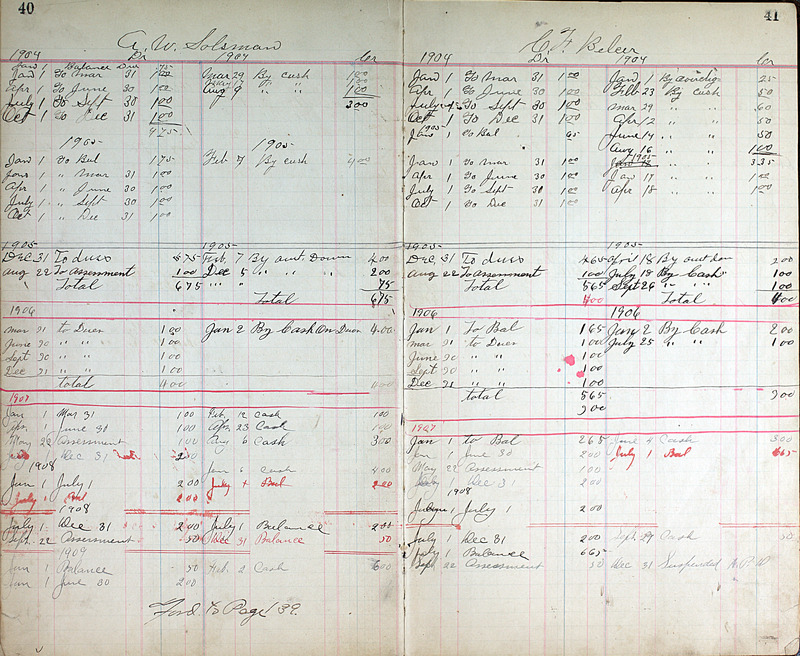 40
A. W. Solsman
1904 Dr 1904 Cr
Jan 1 Balance Due 75
Jan 1 To Mar 31 1 00 Mar 29 By cash 1 00
Apr 1 To June 30 1 00
July 1 To Sept 30 1 00 Aug 9 " " 1 00
Oct 1 to Dec 31 1 00 3 00
4 75
1905 1905
Jan 1 To Bal 1 75 Feb 7 By cash 4 00
Jan 1 " Mar 31 1 00
Apr 1 " June 30 1 00
July 1 " Sept 30 1 00
Oct 1 " Dec 31 1 00
1905 1905
Dec 31 To dues 5 75 Feb. 7 By amt. Down 4 00
Aug 22 To assessment 1 00 Dec 5 " " " 2 00
Total 6 75 " " " 75
Total 6 75
1906
Mar 31 to Dues 1 00 Jan 2 By Cash On Dues 4 00
June 30 " " 1 00
Sept 30 " " 1 00
Dec 31 " " 1 00
total 4 00 4 00
1907
Jan 1 Mar 31 1 00 Feb. 12 Cash 1 00
Apr. 1 June 30 1 00 Apr. 23 Cash 1 00
May 22 Assessment 1 00 Aug 6 Cash 3 00
July 1 Dec 31 2 00
1908 Jan 6 Cash 4 00
Jan 1 July 1 2 00 July 1 Bal 2 00
July 1 Bal 2 00
1908
July 1 Dec 31 2 00 July 1 Balance 2 00
Sept. 22 Assessment 50 Dec 31 Balance 50
1909
Jan 1 Balance 50 Feb. 2 Cash 6 00
Jan 1 June 30 2 00
Ford. to Page 39.
41
C. F. Beleer
1904 Dr 1904 Cr
Jan 1 To Mar 31 1 00 Jan 1 By 25
Apr 1 To June 30 1 00 Feb 23 By cash 50
July 1 To Sept 30 1 00 Mar 29 " " 60
Oct 1 To Dec 31 1 00 Apr 12 " " 50
1905
Jan 1 To Bal 65 June 14 " " 50
Aug 16 " " 1 00
1905
Jan 1 To Mar 31 1 00 3 35
Apr 1 To June 30 1 00 Jan 17 " " 1 00
July 1 To Sept 30 1 00 Apr 18 " " 1 00
Oct 1 To Dec 31 1 00
1905 1905
Dec 31 To dues 4 65 April 18 By amt. 2 00
Aug 22 To assessment 1 00 July 18 By Cash 1 00
Total 5 65 Sept 26 " " 1 00
4 00 Total 4 00
1906 1906
Jan 1 To Bal 1 65 Jan 2 By Cash 2 00
Mar 31 to Dues 1 00 July 25 " " 1 00
June 30 " " 1 00
Sept 30 " " 1 00
Dec 31 " " 1 00
total 5 65 3 00
3 00
1907
Jan 1 to Bal 2 65 June 4 Cash 3 00
Jan 1 June 30 2 00 July 1 Bal 6 65
May 22 Assessment 1 00
July 1 Dec 31 2 00
1908
1 July 1 2 00
July 1 Dec 31 2 00 Sept. 29 Cash 50
July 1 Balance 6 65
Sept. 22 Assessment 50 Dec 31 Suspended N.P.D.